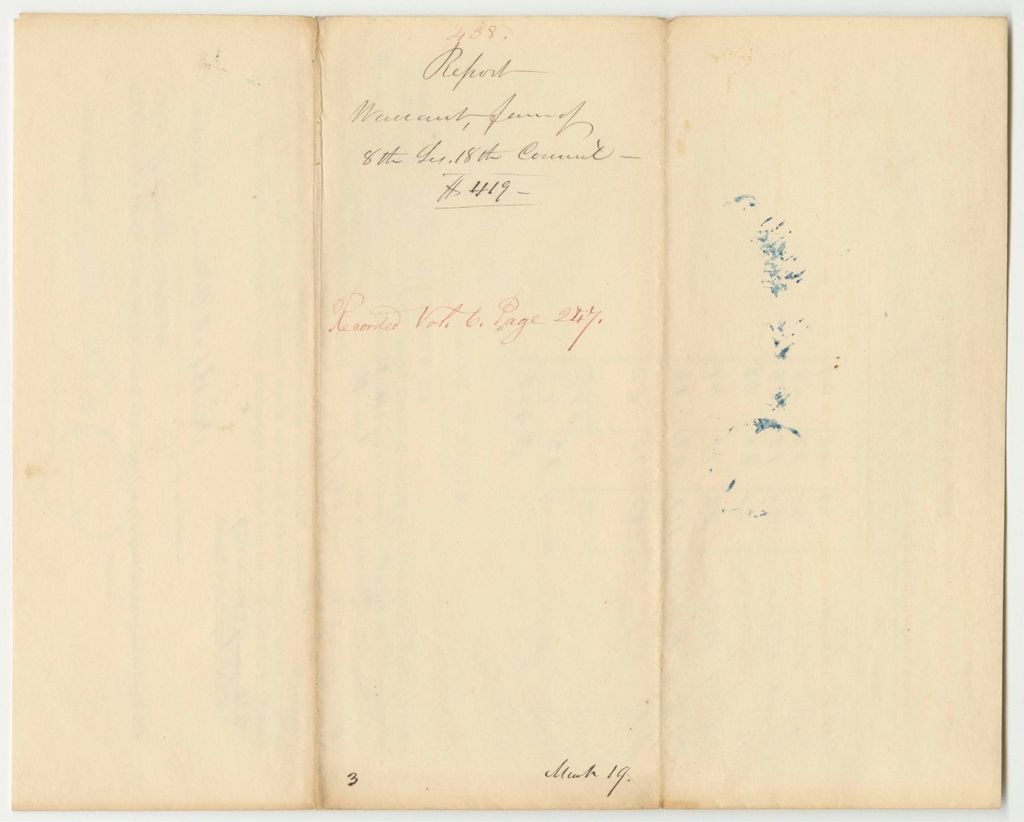 438.
Report
Warrant, favor of
8th Ses. 18th Council —
$ 419 —
Recorded Vol. 6. Page 247.
3
March 19.